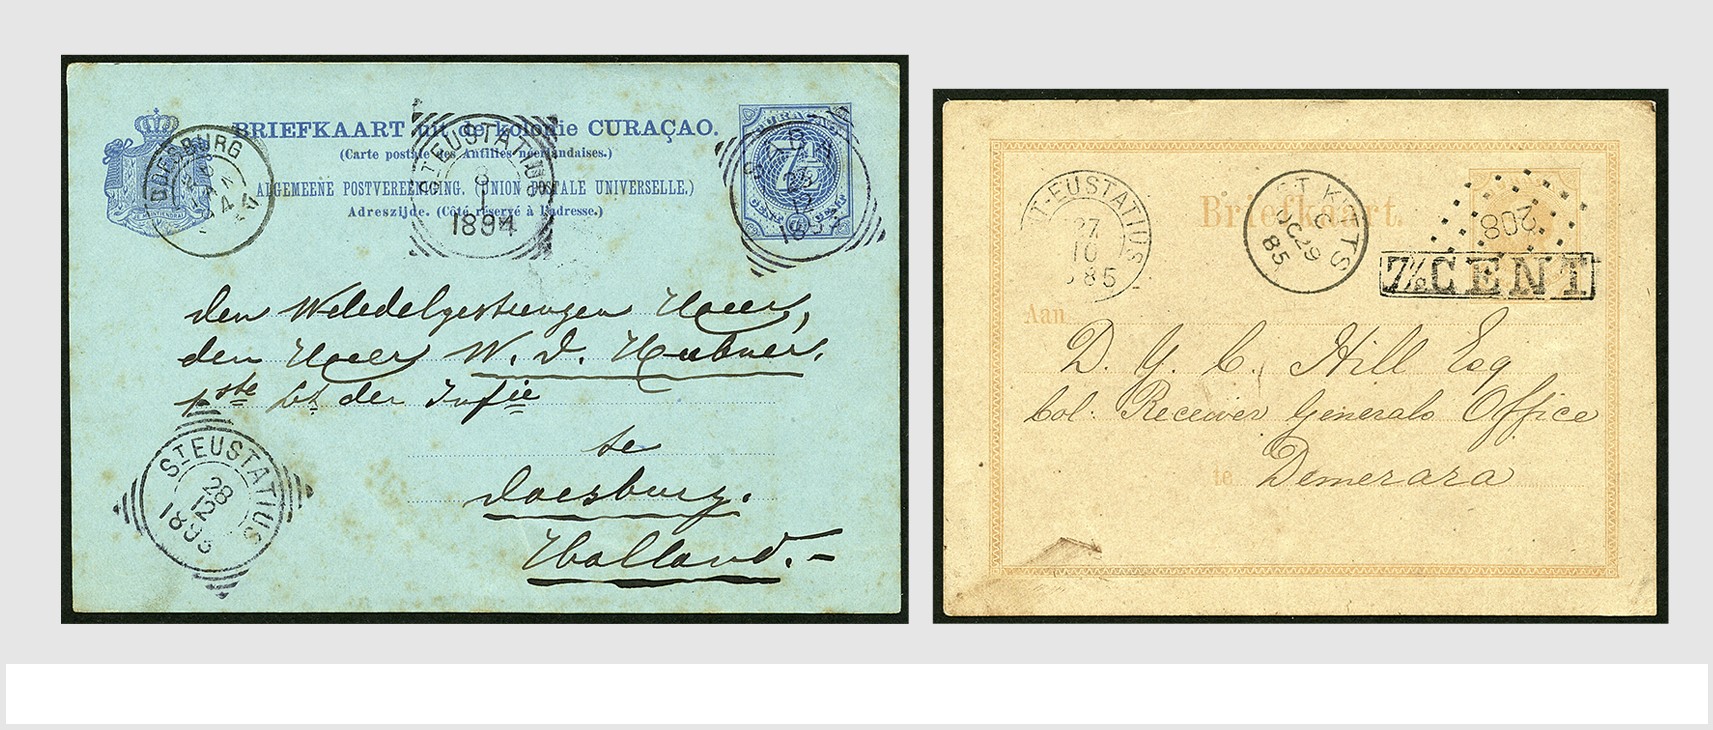 BRIEFKAART uit de kolonie CURAÇAO.
(Carte postale des Antilles néerlandaises.)
ALGEMEENE POSTVEREENIGING. (UNION POSTALE UNIVERSELLE.)
Adreszijde. (Côté réservé à l'adresse.)
DOESBURG
ST EUSTATIUS
8
1
1894
CURAÇAO
7½
CENT
den Weledelgestrengen Heer,
den Heer W. D. Hubner.
te
Doesburg.
Holland.-
ST EUSTATIUS
28
12
1893
ST-EUSTATIUS
27
10
85
Briefkaart.
ST KITTS
C
OC 29
85
208
7½ CENT
Aan
D. Y. C. Hill Esq
Col: Receiver Generals Office
te Demerara